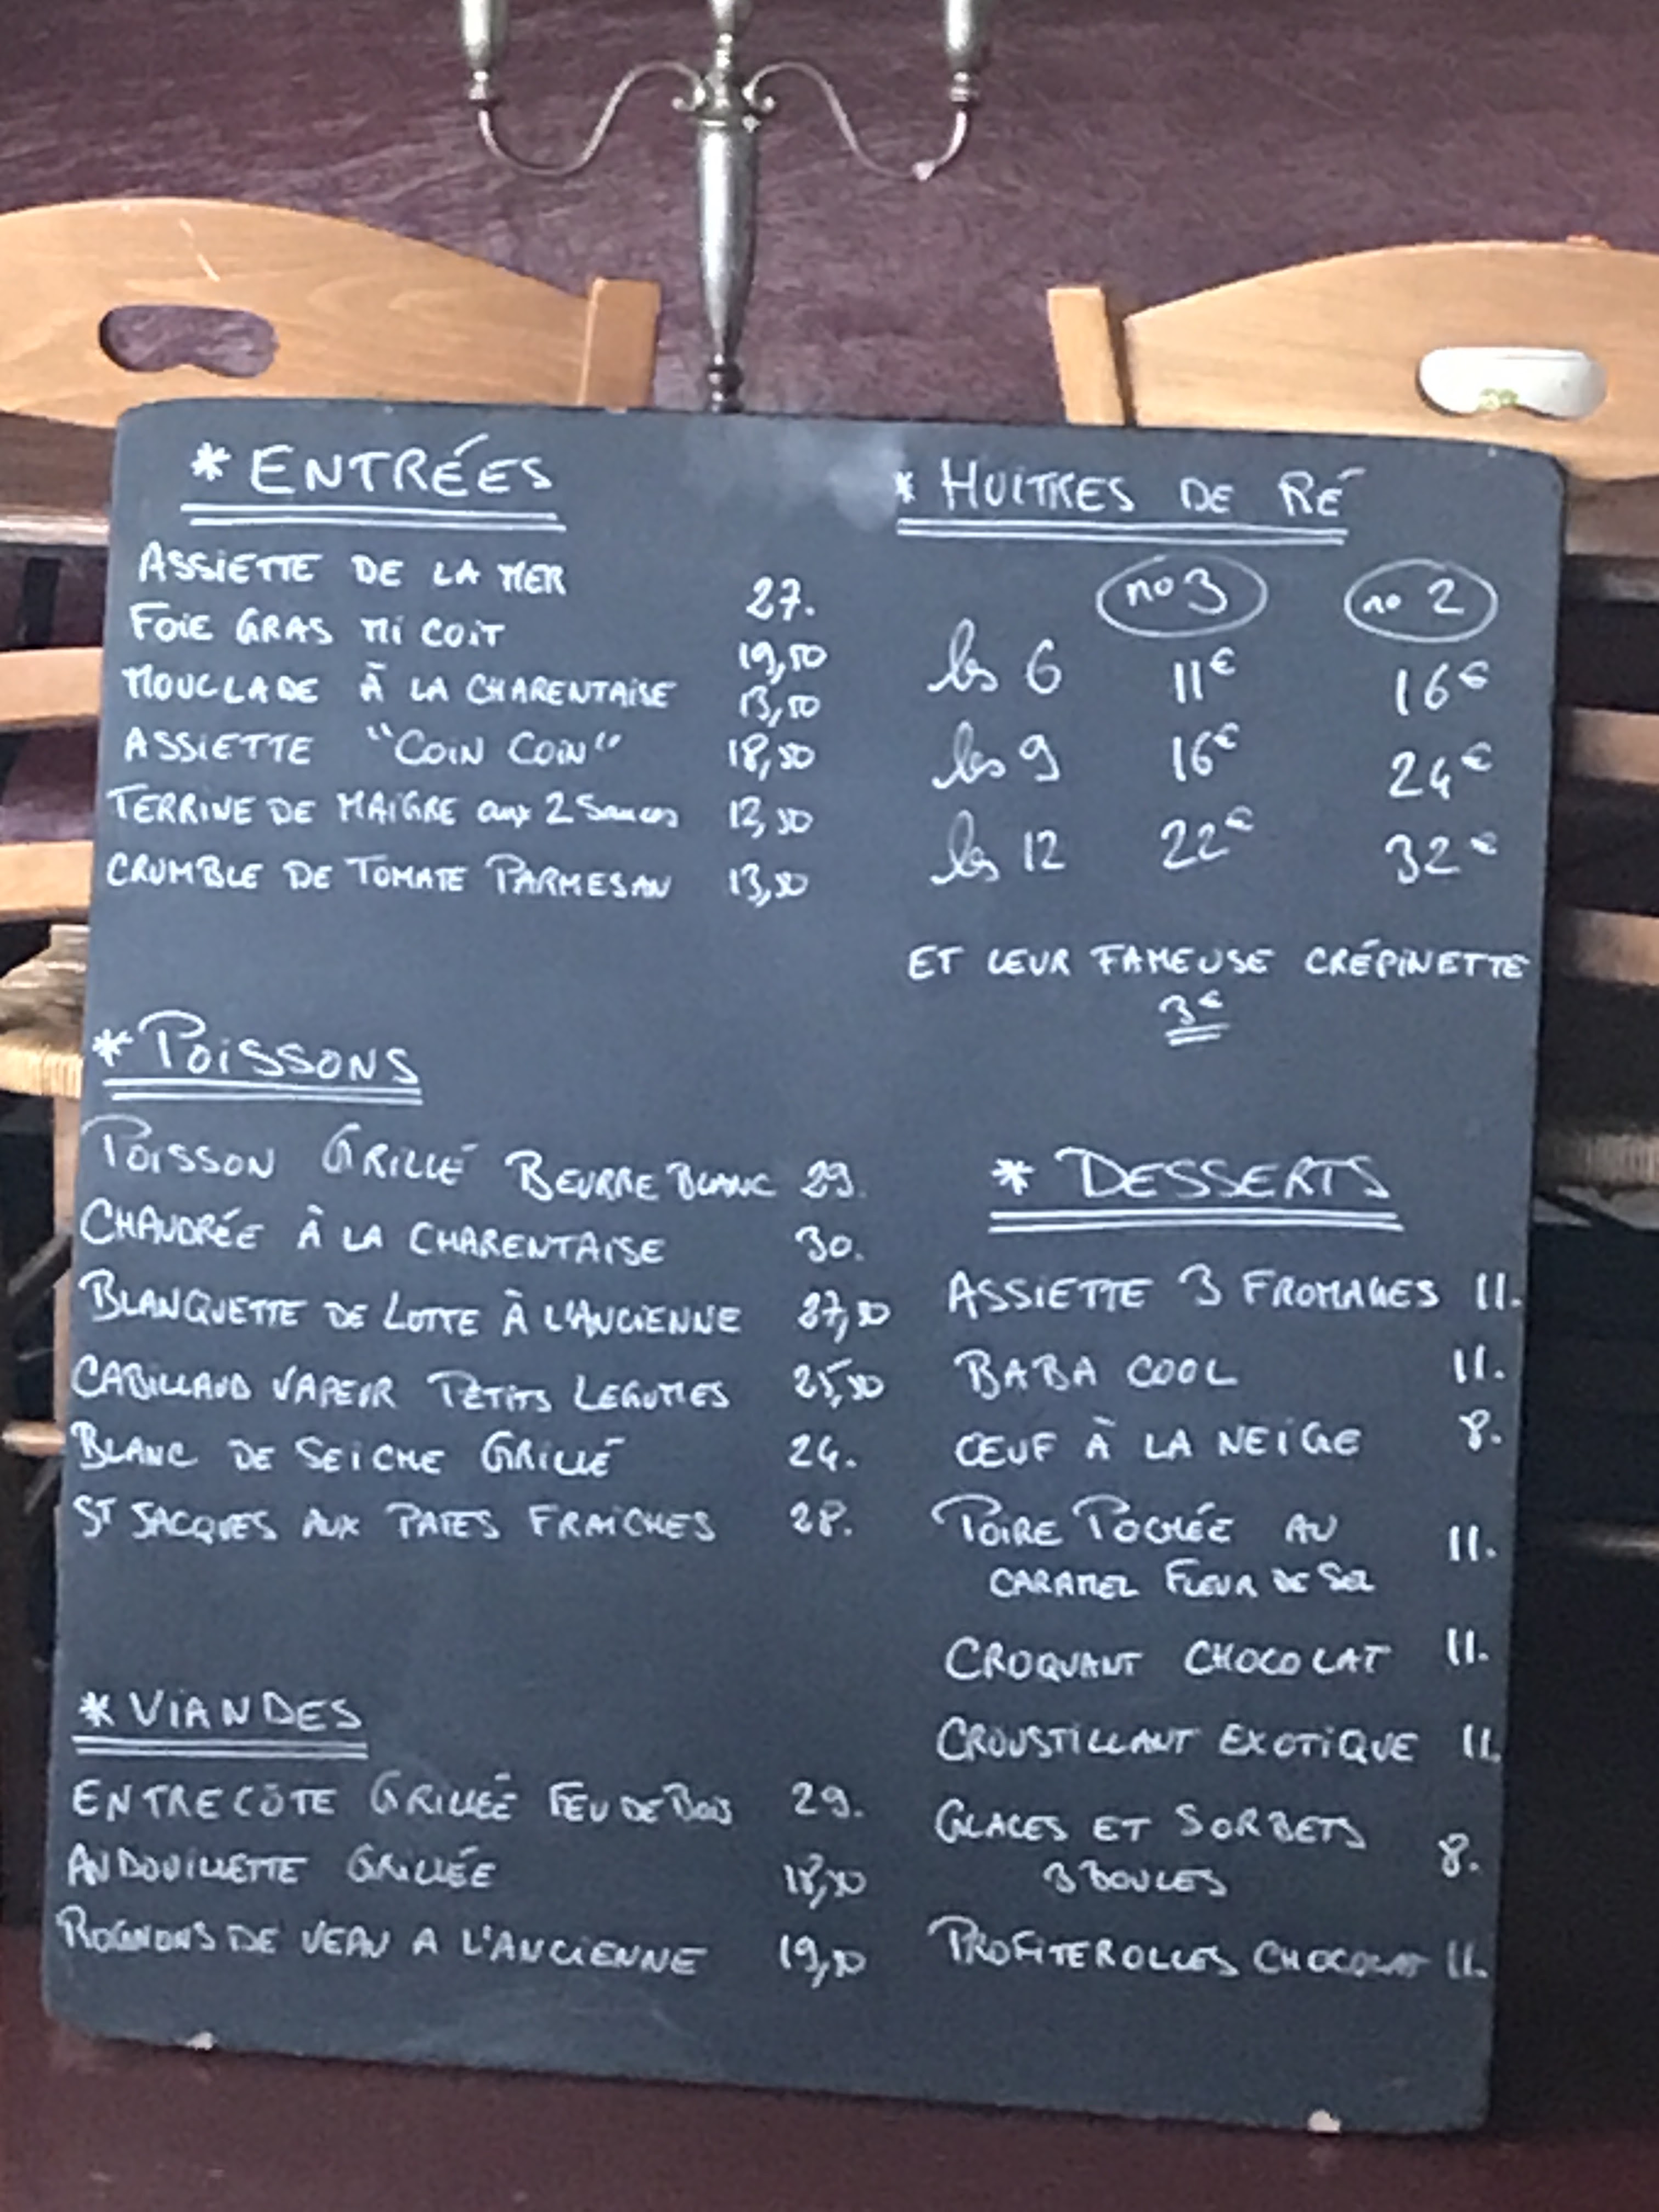 * ENTRÉES
ASSIETTE DE LA MER 27.
FOIE GRAS MI COIT 19,50
MOUCLADE À LA CHARENTAISE 13,50
ASSIETTE "COIN COIN" 18,50
TERRINE DE MAIGRE aux 2 Sauces 12,50
CRUMBLE DE TOMATE PARMESAN 13,50
* HUITRES DE RÉ
no 3 no 2
les 6 11€ 16€
les 9 16€ 24€
les 12 22€ 32€
ET LEUR FAMEUSE CRÉPINETTE
3€
* POISSONS
POISSON GRILLÉ BEURRE BLANC 29.
CHAUDRÉE À LA CHARENTAISE 30.
BLANQUETTE DE LOTTE À L'ANCIENNE 27,50
CABILLAUD VAPEUR PETITS LEGUMES 25,50
BLANC DE SEICHE GRILLÉ 24.
ST JACQUES AUX PATES FRAICHES 28.
* VIANDES
ENTRECÔTE GRILLÉE FEU DE BOIS 29.
ANDOUILLETTE GRILLÉE 18,50
ROGNONS DE VEAU A L'ANCIENNE 19,50
* DESSERTS
ASSIETTE 3 FROMAGES 11.
BABA COOL 11.
ŒUF À LA NEIGE 8.
POIRE POCHÉE AU 11.
CARAMEL FLEUR DE SEL
CROQUANT CHOCOLAT 11.
CROUSTILLANT EXOTIQUE 11.
GLACES ET SORBETS 8.
3 BOULES
PROFITEROLLES CHOCOLAT 11.